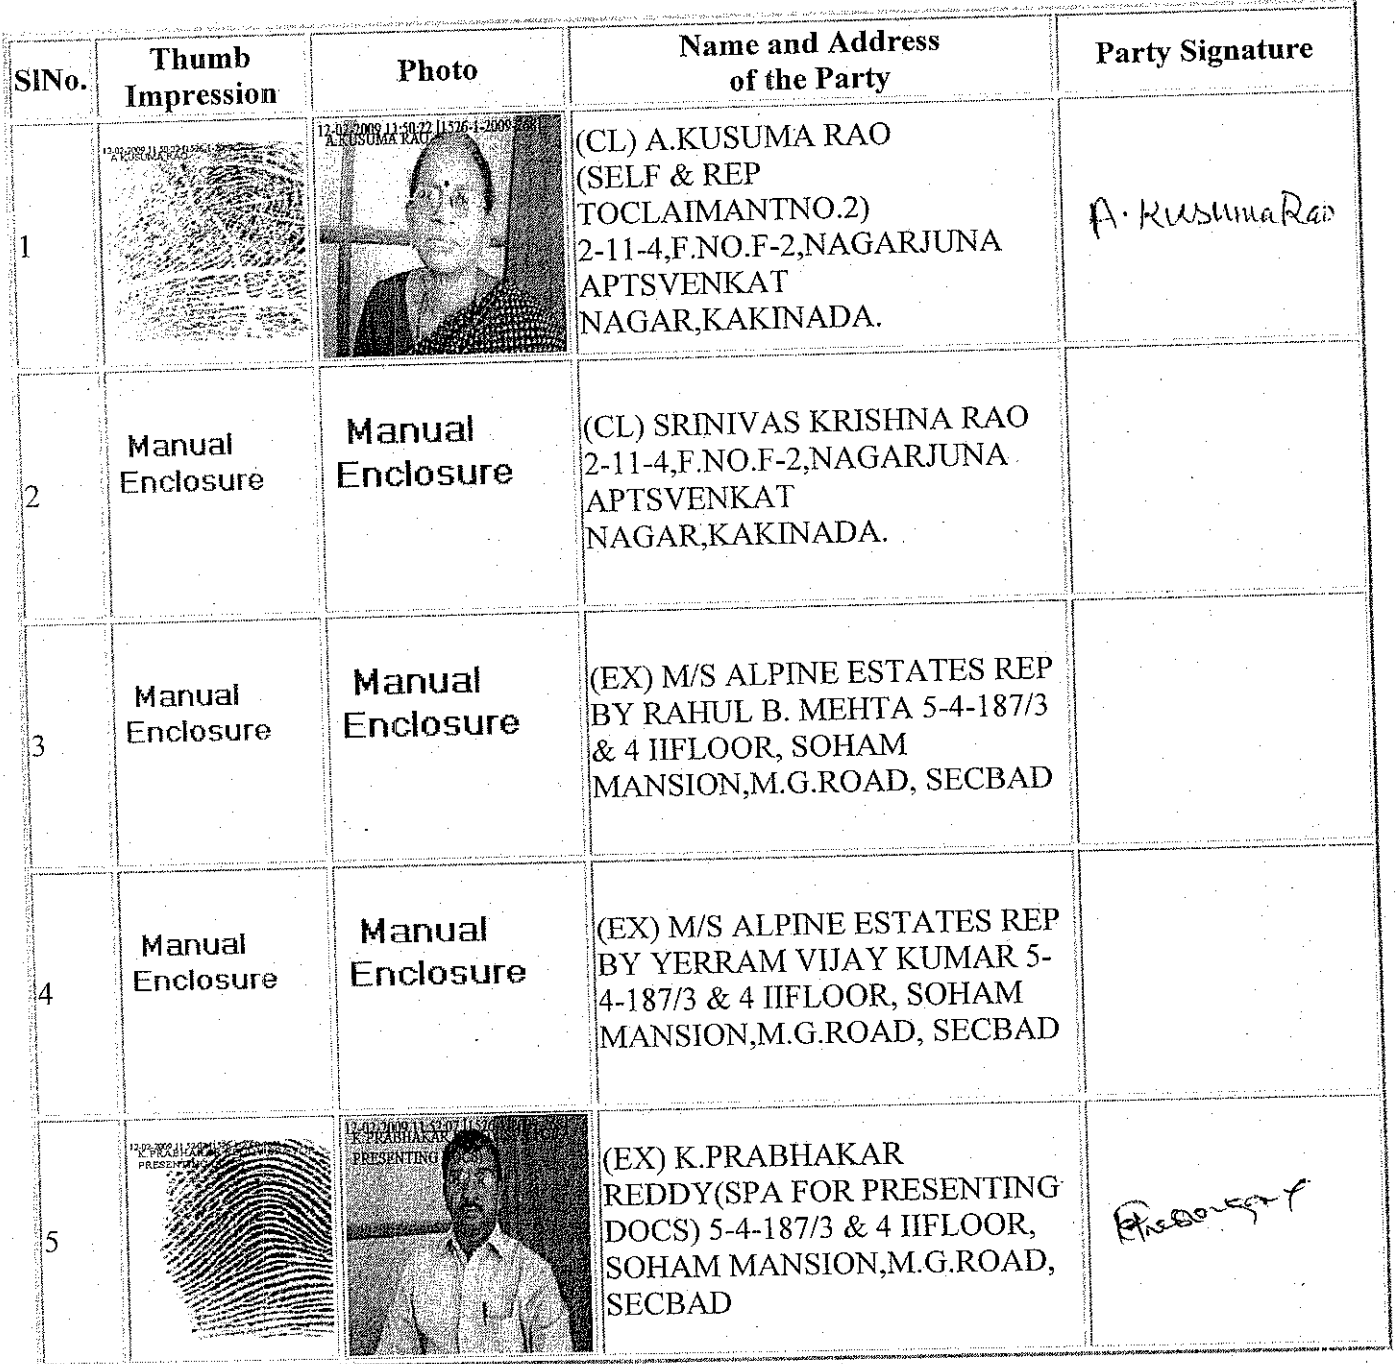 SlNo.
Thumb
Impression
Photo
Name and Address
of the Party
Party Signature
1
12-02-2009 11:50:22
A.KUSUMA RAO
12-02-2009 11:50:22 [1526-1-2009
A.KUSUMA RAO
(CL) A.KUSUMA RAO
(SELF & REP
TOCLAIMANTNO.2)
2-11-4,F.NO.F-2,NAGARJUNA
APTSVENKAT
NAGAR,KAKINADA.
A. Kusuma Rao
2
Manual
Enclosure
Manual
Enclosure
(CL) SRINIVAS KRISHNA RAO
2-11-4,F.NO.F-2,NAGARJUNA
APTSVENKAT
NAGAR,KAKINADA.
3
Manual
Enclosure
Manual
Enclosure
(EX) M/S ALPINE ESTATES REP
BY RAHUL B. MEHTA 5-4-187/3
& 4 IIFLOOR, SOHAM
MANSION,M.G.ROAD, SECBAD
4
Manual
Enclosure
Manual
Enclosure
(EX) M/S ALPINE ESTATES REP
BY YERRAM VIJAY KUMAR 5-
4-187/3 & 4 IIFLOOR, SOHAM
MANSION,M.G.ROAD, SECBAD
5
K.PRABHAKAR
PRESENTING
12-02-2009 11:52:07
K.PRABHAKAR
PRESENTING DOCS)
(EX) K.PRABHAKAR
REDDY(SPA FOR PRESENTING
DOCS) 5-4-187/3 & 4 IIFLOOR,
SOHAM MANSION,M.G.ROAD,
SECBAD